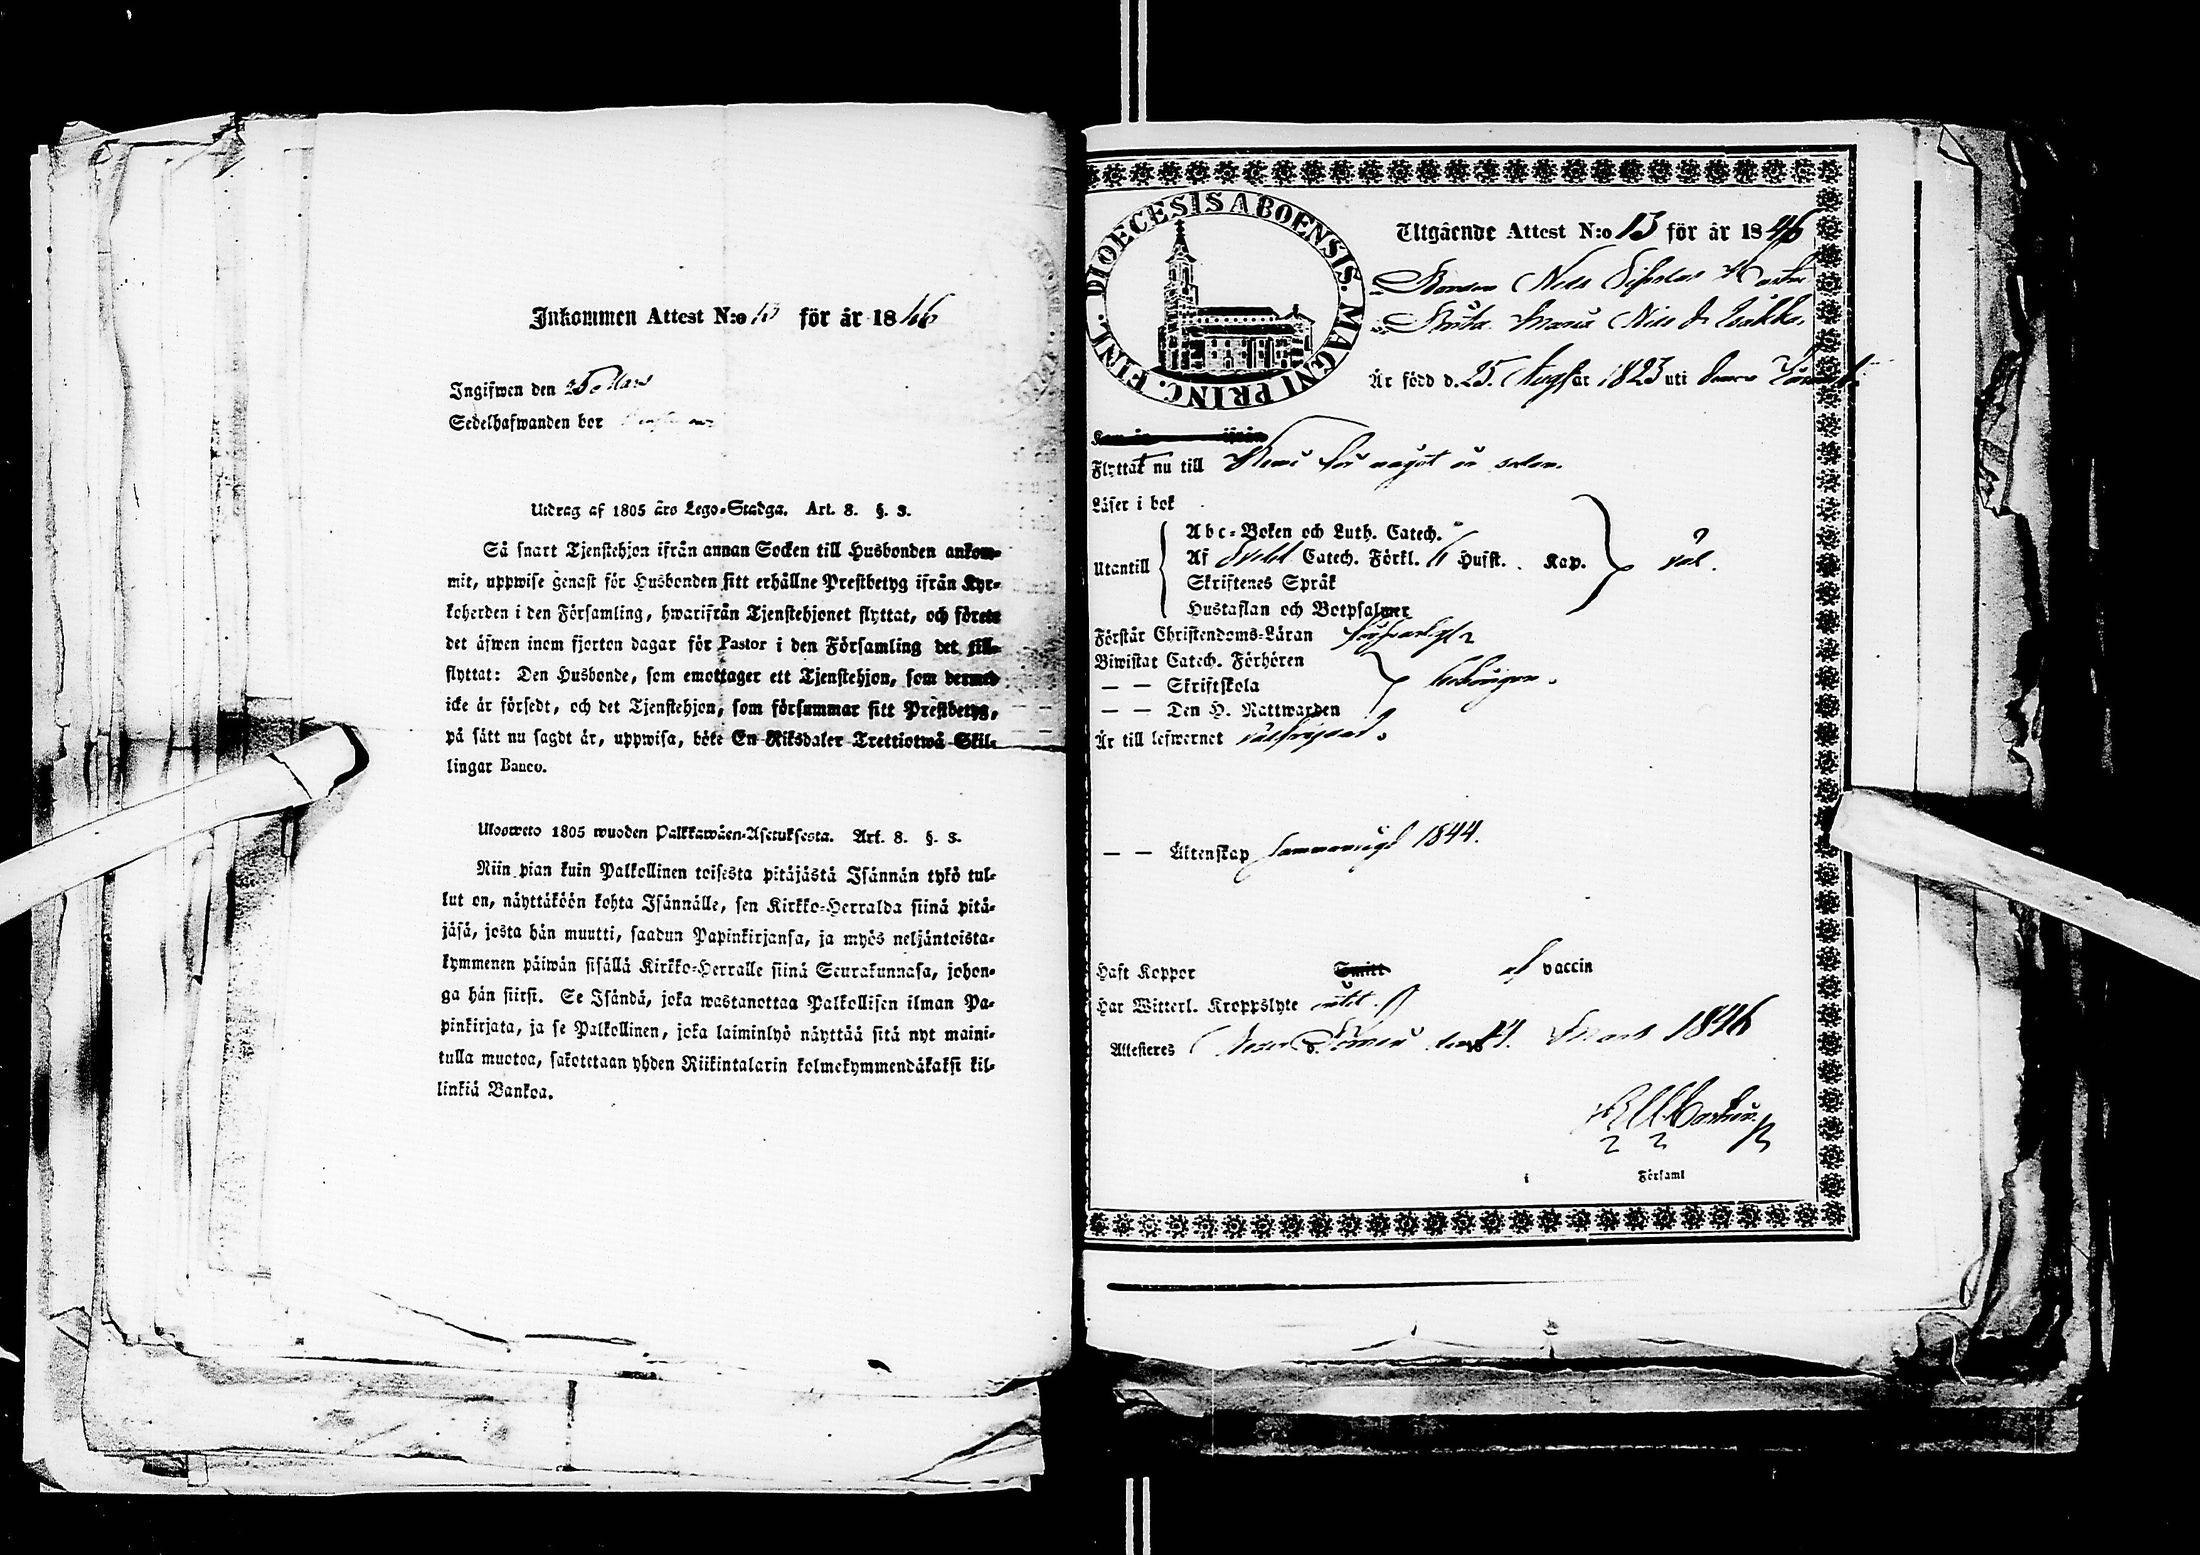 Inkommen Attest N:o 13 för år 1846
Ingifwen den 25 Mars
Sedelhafwanden bor
Utdrag af 1805 års Lego-Stadga. Art. 8. §. 3.
Så snart Tjenstehjon ifrån annan Socken till Husbonden ankom-
mit, uppwise genast för Husbonden sitt erhållne Prestbetyg ifrån Kyr-
koherden i den Församling, hwarifrån Tjenstehjonet flyttat, och förete
det äfwen inom fjorton dagar för Pastor i den Församling det till-
flyttat: Den Husbonde, som emottager ett Tjenstehjon, som dermed
icke är försedt, och det Tjenstehjon, som försummar sitt Prestbetyg,
på sätt nu sagdt är, uppwisa, böte En Riksdaler Trettiotwå Skil-
lingar Banco.
Ulosweto 1805 wuoden Palkkawäen-Asetuksesta. Art. 8. §. 3.
Niin pian kuin Palkollinen toisesta pitäjästä Isännän tykö tul-
lut on, näyttäköön kohta Isännälle, sen Kirkko-Herralda siinä pitä-
jäsä, josta hän muutti, saadun Papinkirjansa, ja myös neljäntoista-
kymmenen päiwän sisällä Kirkko-Herralle siinä Seurakunnasa, johon-
ga hän siirsi. Se Isändä, joka wastanottaa Palkollisen ilman Pa-
pinkirjata, ja se Palkollinen, joka laiminlyö näyttää sitä nyt maini-
tulla muotoa, sakotetaan yhden Riikintalarin kolmekymmendäkaksi kil-
linkiä Bankoa.
DIOECESIS ABOENSIS. MAGNI PRINC. FINL.
Utgående Attest N:o 13 för år 1846
Nils
Maria Nils d.
Är född d. 25. Aug. år 1823 uti
Kom år ifrån
Flyttat nu till Kemi för något år sedan.
Läser i bok
Abc-Boken och Luth. Catech.
Utantill Af Sved. Catech. Förkl. 6 Hufst. Kap. väl.
Skriftenes Språk
Hustaflan och Botpsalmer
Förstår Christendoms-Läran försvarligt
Biwistat Catech. Förhören
— — Skriftskola behörigen.
— — Den H. Nattwarden
Är till lefwernet välfrejdad.
— — Äktenskap sammanvigd 1844.
Haft Koppor Smitt af vaccin
Har Witterl. Kroppslyte intet.
Attesteres Neder Torneå den 21. Mars 1846
i Församl